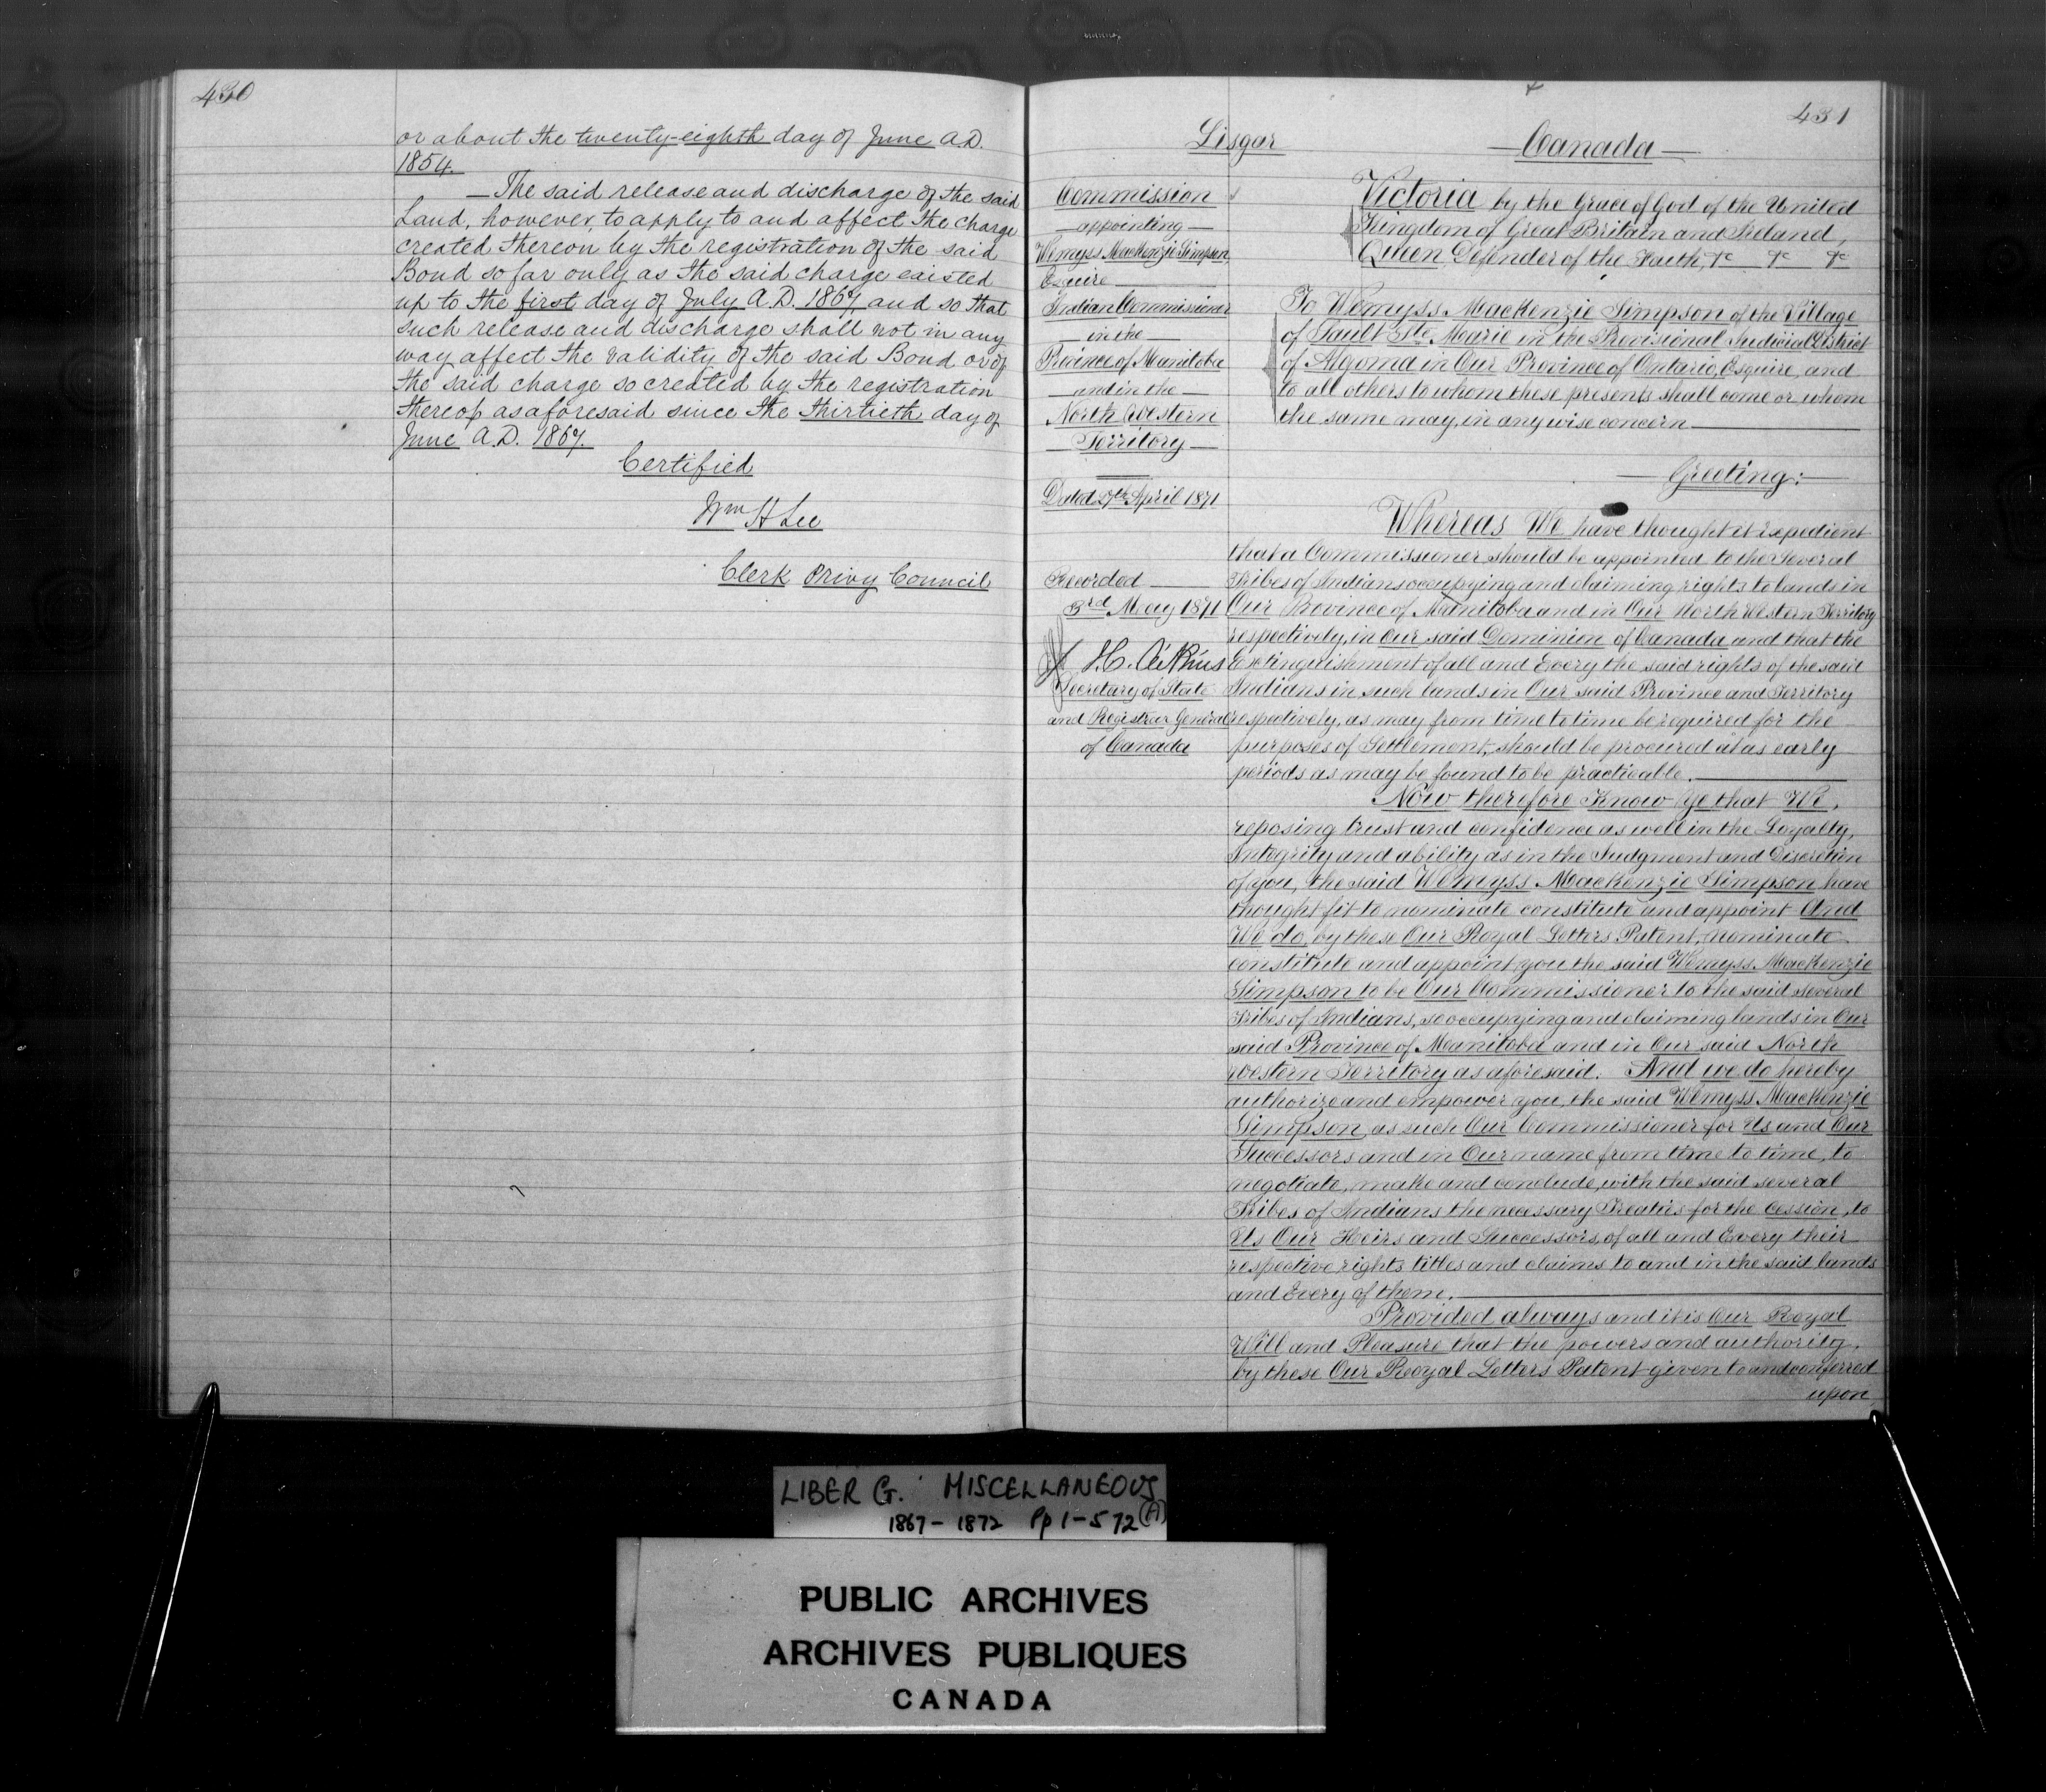 430
or about the twenty-eighth day of June A.D.
1854.
— The said release and discharge of the said
Land, however, to apply to and affect the charge
created thereon by the registration of the said
Bond so far only as the said charge existed
up to the first day of July A.D. 1867 and so that
such release and discharge shall not in any
way affect the validity of the said Bond or of
the said charge so created by the registration
thereof as aforesaid since the thirtieth day of
June A.D. 1867.
Certified
Wm H Lee
Clerk Privy Council
431
Lisgar
— Canada —
Commission
— appointing —
Wemyss MacKenzie Simpson
Esquire
Indian Commissioner
— in the —
Province of Manitoba
— and in the —
North Western
— Territory —
Dated 27th April 1871
Recorded
3rd May 1871
J.C. Aikins
Secretary of State
and Registrar General
of Canada
Victoria by the Grace of God of the United
Kingdom of Great Britain and Ireland,
Queen, Defender of the Faith, &c &c &c
To Wemyss MacKenzie Simpson of the Village
of Sault Ste Marie in the Provisional Judicial District
of Algoma in Our Province of Ontario, Esquire, and
to all others to whom these presents shall come or whom
the same may, in any wise concern
— Greeting: —
Whereas We have thought it expedient
that a Commissioner should be appointed to the Several
Tribes of Indians occupying and claiming rights to lands in
Our Province of Manitoba and in Our North Western Territory
respectively, in Our said Dominion of Canada and that the
Extinguishment of all and Every the said rights of the said
Indians in such lands in Our said Province and Territory
respectively, as may from time to time be required for the
purposes of Settlement, should be procured at as early
periods as may be found to be practicable.
Now therefore Know Ye that We,
reposing trust and confidence as well in the Loyalty,
Integrity and ability as in the Judgment and Discretion
of you, the said Wemyss MacKenzie Simpson have
thought fit to nominate constitute and appoint And
We do, by these Our Royal Letters Patent, nominate
constitute and appoint you the said Wemyss MacKenzie
Simpson to be Our Commissioner to the said several
Tribes of Indians, so occupying and claiming lands in Our
said Province of Manitoba and in Our said North
western Territory as aforesaid. And we do hereby
authorize and empower you, the said Wemyss MacKenzie
Simpson, as such Our Commissioner for Us and Our
Successors and in Our name from time to time, to
negotiate, make and conclude, with the said several
Tribes of Indians the necessary Treaties for the cession, to
Us Our Heirs and Successors, of all and Every their
respective rights titles and claims to and in the said lands
and Every of them.
Provided always and it is Our Royal
Will and Pleasure that the powers and authority,
by these Our Royal Letters Patent given to and conferred
upon
LIBER G. MISCELLANEOUS
1867 - 1872 Pp 1-572 (A)
PUBLIC ARCHIVES
ARCHIVES PUBLIQUES
CANADA